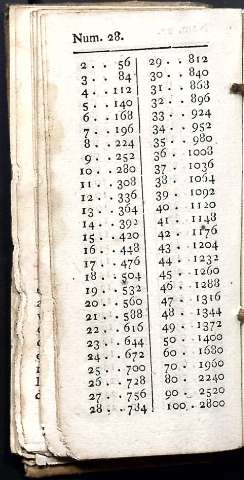 Num. 28.
2 . . 56
3 . . 84
4 . . 112
5 . . 140
6 . . 168
7 . . 196
8 . . 224
9 . . 252
10 . . 280
11 . . 308
12 . . 336
13 . . 364
14 . . 392
15 . . 420
16 . . 448
17 . . 476
18 . . 504
19 . . 532
20 . . 560
21 . . 588
22 . . 616
23 . . 644
24 . . 672
25 . . 700
26 . . 728
27 . . 756
28 . . 784
29 . . 812
30 . . 840
31 . . 868
32 . . 896
33 . . 924
34 . . 952
35 . . 980
36 . . 1008
37 . . 1036
38 . . 1064
39 . . 1092
40 . . 1120
41 . . 1148
42 . . 1176
43 . . 1204
44 . . 1232
45 . . 1260
46 . . 1288
47 . . 1316
48 . . 1344
49 . . 1372
50 . . 1400
60 . . 1680
70 . . 1960
80 . . 2240
90 . . 2520
100 . . 2800